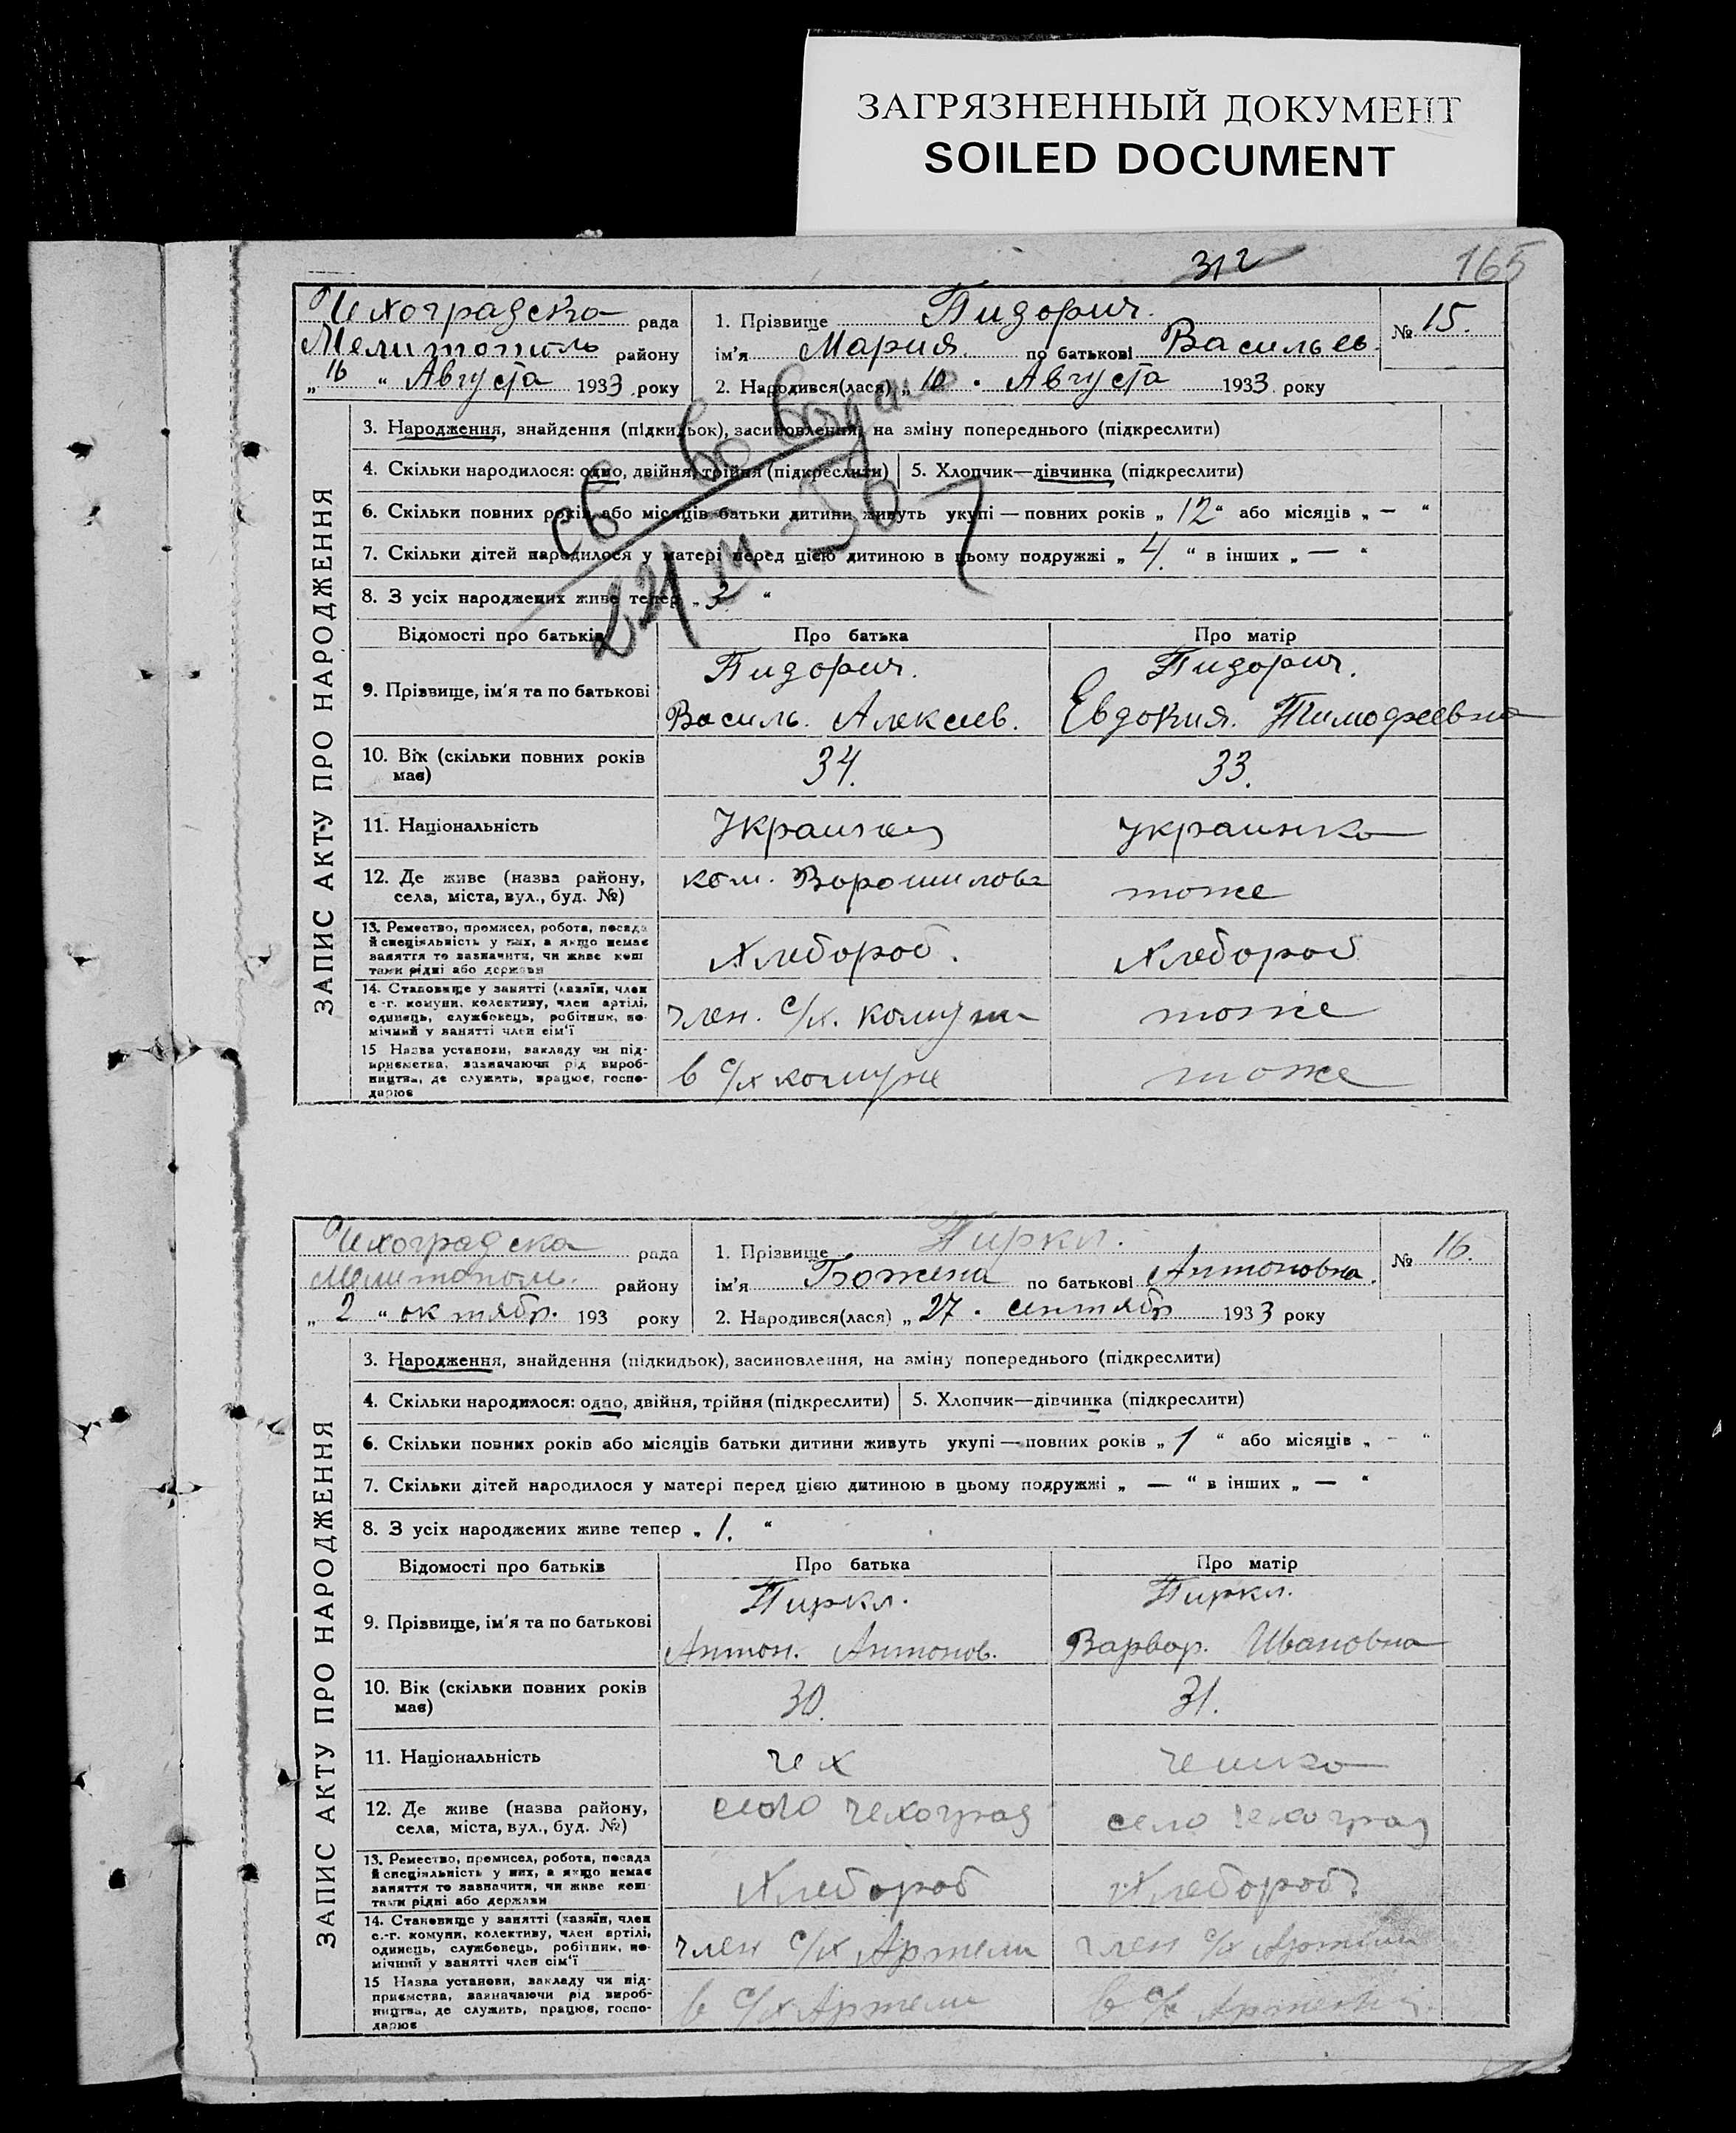 ЗАГРЯЗНЕННЫЙ ДОКУМЕНТ
SOILED DOCUMENT
312
165
Чехоградска рада
Мелитополь району
„16“ Августа 1933 року
1. Прізвище Пидорич.
ім'я Мария. по батькові Васильев.
2. Народився(лася) „10. Августа 1933 року
№ 15.
ЗАПИС АКТУ ПРО НАРОДЖЕННЯ
3. Народження, знайдення (підкидьок), засиновлення, на зміну попереднього (підкреслити)
4. Скільки народилося: одно, двійня, трійня (підкреслити)
5. Хлопчик—дівчинка (підкреслити)
6. Скільки повних років або місяців батьки дитини живуть укупі — повних років „12“ або місяців „—“
7. Скільки дітей народилося у матері перед цією дитиною в цьому подружжі „4.“ в інших „—“
8. З усіх народжених живе тепер „3“
св-во выдано
22/III-50
Відомості про батьків
Про батька
Про матір
9. Прізвище, ім'я та по батькові
Пидорич.
Василь. Алексеев.
Пидорич.
Евдокия. Тимофеевна
10. Вік (скільки повних років має)
34.
33.
11. Національність
Украинец
украинка
12. Де живе (назва району, села, міста, вул., буд. №)
ком. Ворошилова
тоже
13. Ремество, промисел, робота, посада й спеціяльність у них, а якщо немає заняття то зазначити, чи живе коштами рідні або держави
Хлебороб.
Хлебороб
14. Становище у занятті (хазяїн, член с.-г. комуни, колективу, член артілі, одинець, службовець, робітник, помічний у занятті член сім'ї
член. с/х. комуни
тоже
15 Назва установи, закладу чи підприємства, зазначаючи рід виробництва, де служить, працює, господарює
в с/х комуне
тоже
Чехоградска рада
Мелитополь. району
„2“ октябр. 193 року
1. Прізвище Пиркл.
ім'я Божена по батькові Антоновна.
2. Народився(лася) „27. сентябр 1933 року
№ 16.
ЗАПИС АКТУ ПРО НАРОДЖЕННЯ
3. Народження, знайдення (підкидьок), засиновлення, на зміну попереднього (підкреслити)
4. Скільки народилося: одно, двійня, трійня (підкреслити)
5. Хлопчик—дівчинка (підкреслити)
6. Скільки повних років або місяців батьки дитини живуть укупі — повних років „1“ або місяців „-“
7. Скільки дітей народилося у матері перед цією дитиною в цьому подружжі „—“ в інших „—“
8. З усіх народжених живе тепер „1.“
Відомості про батьків
Про батька
Про матір
9. Прізвище, ім'я та по батькові
Пиркл.
Антон. Антонов.
Пиркл.
Варвар. Ивановна
10. Вік (скільки повних років має)
30.
31.
11. Національність
чех
чешка
12. Де живе (назва району, села, міста, вул., буд. №)
село Чехоград
село Чехоград
13. Ремество, промисел, робота, посада й спеціяльність у них, а якщо немає заняття то зазначити, чи живе коштами рідні або держави
Хлебороб
Хлебороб.
14. Становище у занятті (хазяїн, член с.-г. комуни, колективу, член артілі, одинець, службовець, робітник, помічний у занятті член сім'ї
член с/х Артели
член с/х Артели
15 Назва установи, закладу чи підприємства, зазначаючи рід виробництва, де служить, працює, господарює
в с/х Артели
в с/х Артели